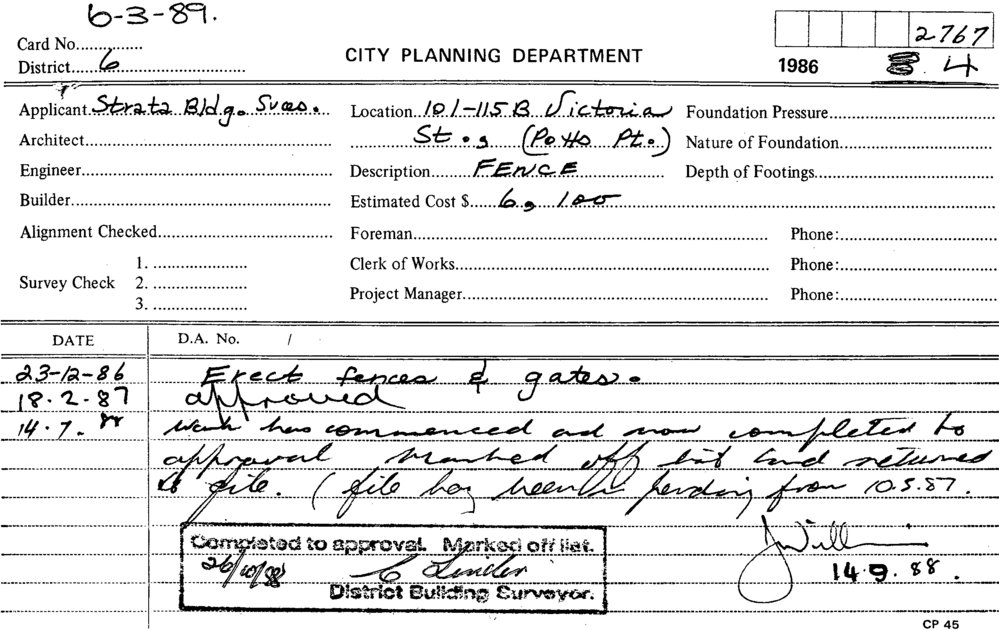 6-3-89.
Card No...............
District......6..............................
CITY PLANNING DEPARTMENT
2767
1986 4
Applicant Strata Bldg. Svces.
Location 101-115B Victoria
St., (Potts Pt.)
Foundation Pressure
Architect
Nature of Foundation
Engineer
Description FENCE
Depth of Footings
Builder
Estimated Cost $ 6,100
Alignment Checked
Foreman
Phone:
Survey Check
1.
2.
3.
Clerk of Works
Phone:
Project Manager
Phone:
DATE
D.A. No. /
23-12-86 Erect fences & gates.
18.2.87 approved
14.7.88 Work has commenced and now completed to
approval marked off list and returned
to file. (file has been in pending from 10.5.87.
J Williams
14 9. 88.
Completed to approval. Marked off list.
26/10/88
District Building Surveyor.
CP 45